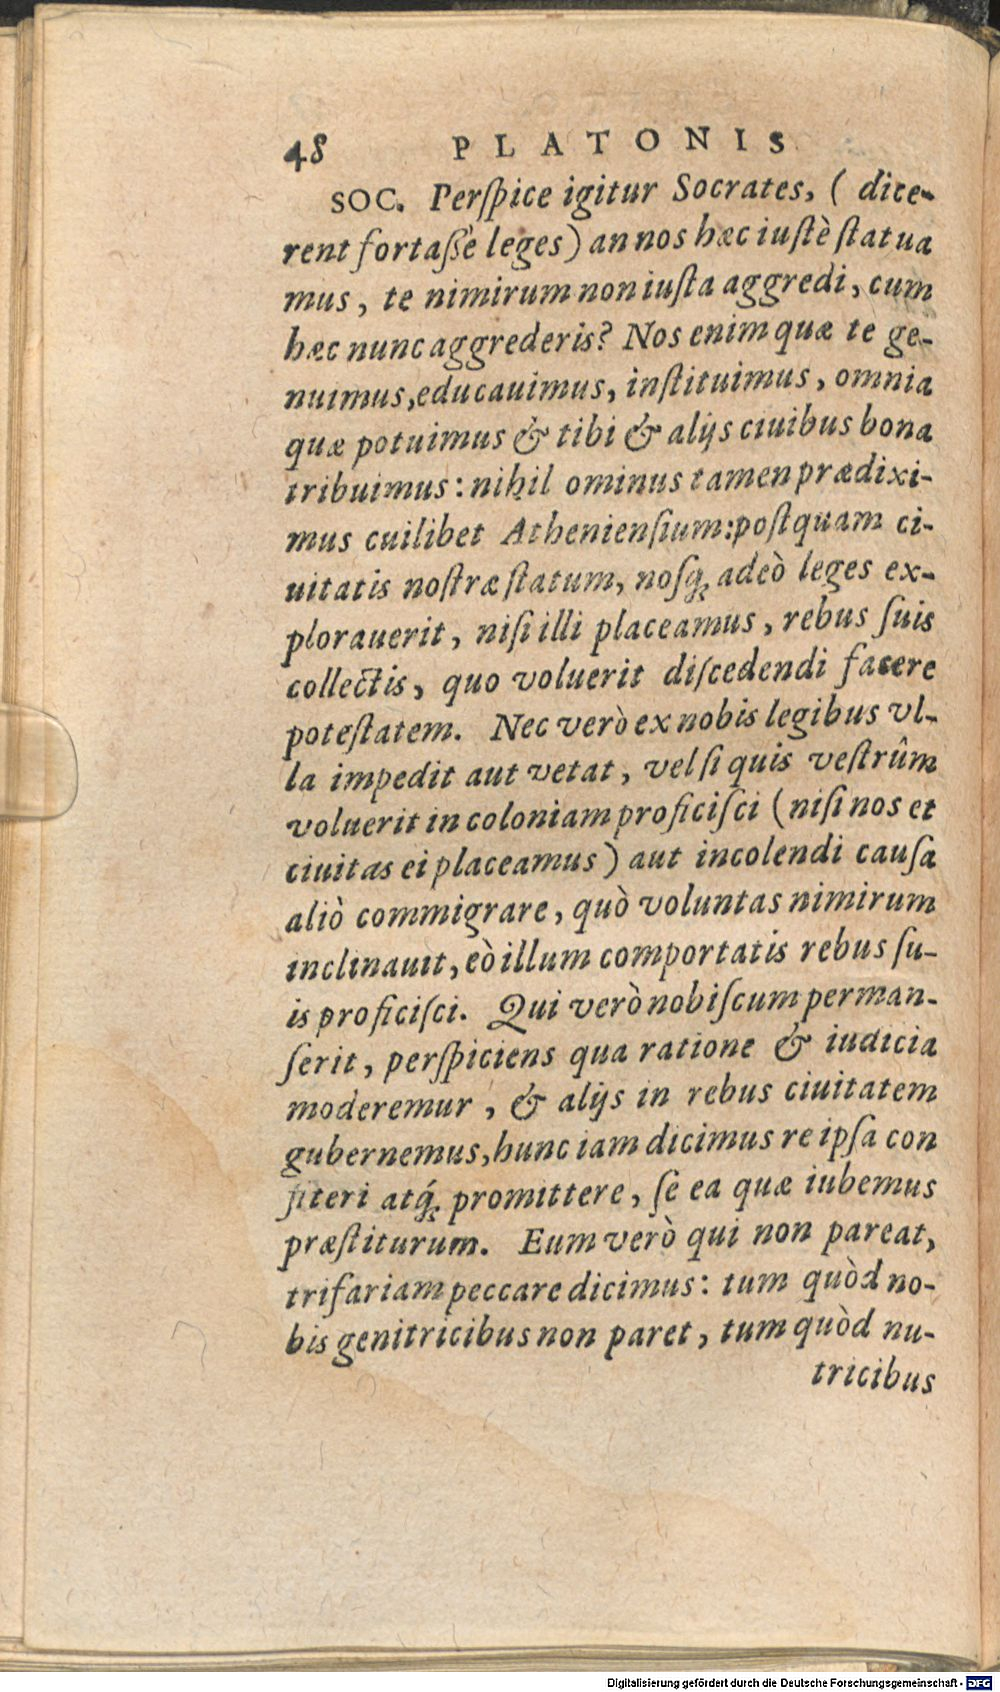 48 PLATONIS
SOC. Perſpice igitur Socrates, ( dice-
rent fortaſſè leges) an nos hæc iuſtè ſtatua
mus, te nimirum non iuſta aggredi, cum
hæc nunc aggrederis? Nos enim quæ te ge-
nuimus, educauimus, inſtituimus, omnia
quæ potuimus & tibi & alijs ciuibus bona
tribuimus: nihil ominus tamen prædixi-
mus cuilibet Athenienſium: poſtquam ci-
uitatis noſtræ ſtatum, noſq; adeò leges ex-
plorauerit, niſi illi placeamus, rebus ſuis
collectis, quo voluerit diſcedendi facere
poteſtatem. Nec verò ex nobis legibus vl-
la impedit aut vetat, vel ſi quis veſtrûm
voluerit in coloniam proficiſci (niſi nos et
ciuitas ei placeamus) aut incolendi cauſa
aliò commigrare, quò voluntas nimirum
inclinauit, eò illum comportatis rebus ſu-
is proficiſci. Qui verò nobiſcum perman-
ſerit, perſpiciens qua ratione & iudicia
moderemur, & alijs in rebus ciuitatem
gubernemus, hunc iam dicimus re ipſa con
fiteri atq́; promittere, ſe ea quæ iubemus
præſtiturum. Eum verò qui non pareat,
trifariam peccare dicimus: tum quòd no-
bis genitricibus non paret, tum quòd nu-
tricibus
Digitalisierung gefördert durch die Deutsche Forschungsgemeinschaft - DFG